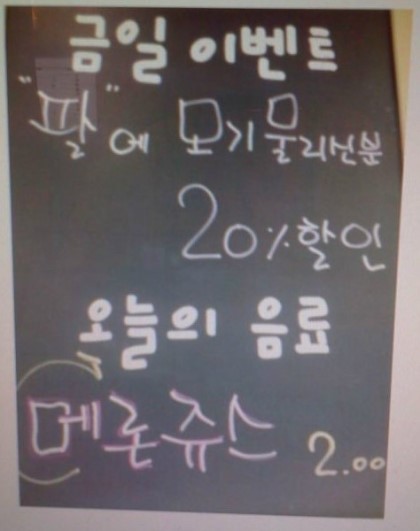 금일 이벤트
"팔"에 모기물리신분
20%할인
오늘의 음료
메론쥬스 2.00